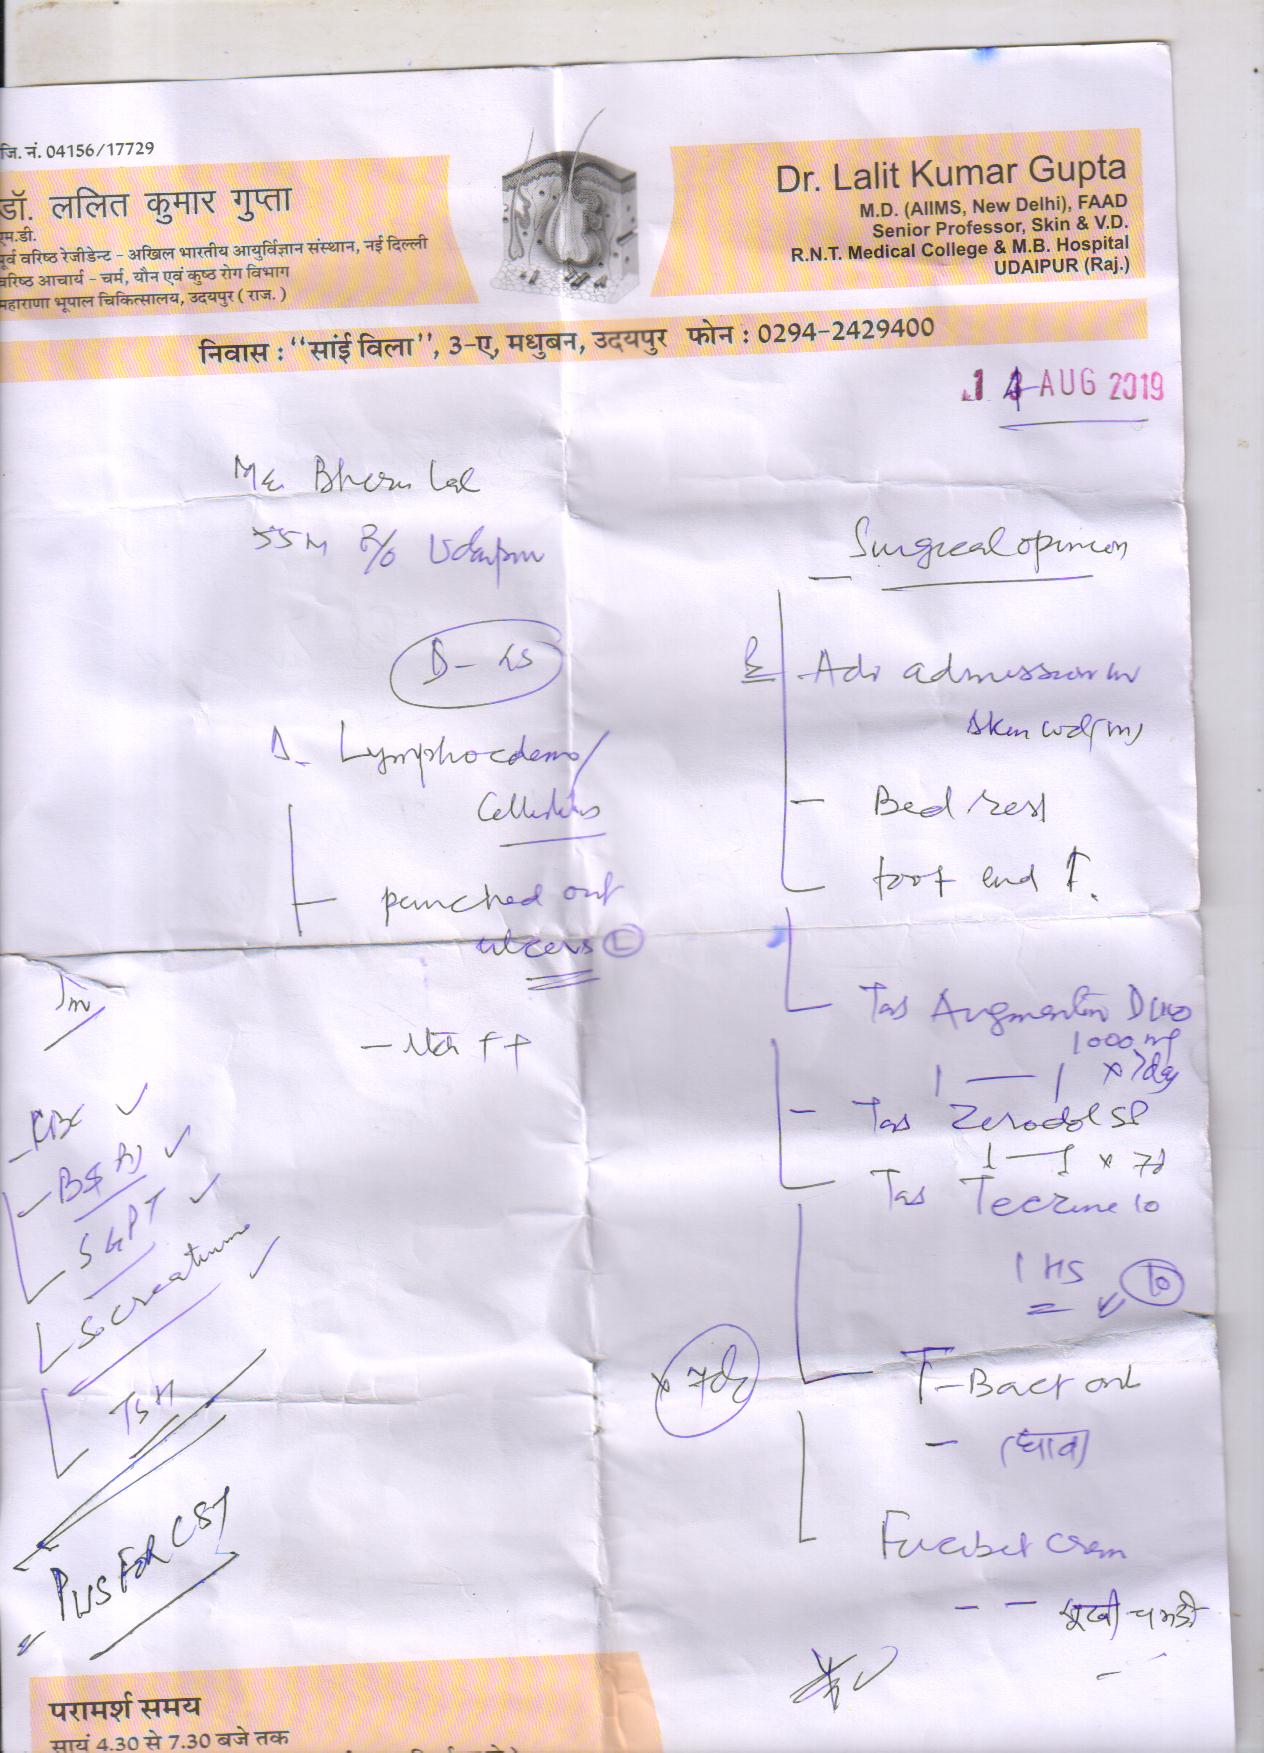 जि. नं. 04156/17729
डॉ. ललित कुमार गुप्ता
एम.डी.
पूर्व वरिष्ठ रेजीडेन्ट - अखिल भारतीय आयुर्विज्ञान संस्थान, नई दिल्ली
वरिष्ठ आचार्य - चर्म, यौन एवं कुष्ठ रोग विभाग
महाराणा भूपाल चिकित्सालय, उदयपुर ( राज. )
Dr. Lalit Kumar Gupta
M.D. (AIIMS, New Delhi), FAAD
Senior Professor, Skin & V.D.
R.N.T. Medical College & M.B. Hospital
UDAIPUR (Raj.)
निवास : ‘‘सांई विला’’, 3-ए, मधुबन, उदयपुर फोन : 0294-2429400
14 AUG 2019
Bheru Lal
55M R/o Udaipur
Lymphoedema/
Cellulitis
punched out
ulcers (L)
CBC
SGPT
S. creatinine
TSH
PUS FOR CST
Surgical opinion
Adv admission in
Skin wd (m)
Bed rest
foot end ↑.
Tab Augmentin Duo
1000 mg
1 — 1 x 7day
- Tab Zerodol SP
1 — 1 x 7d
Tab Teczine 10
1 HS 10
T-Bact oint
- (घाव)
Fucibet cream
- - सूखी चमडी
परामर्श समय
सायं 4.30 से 7.30 बजे तक